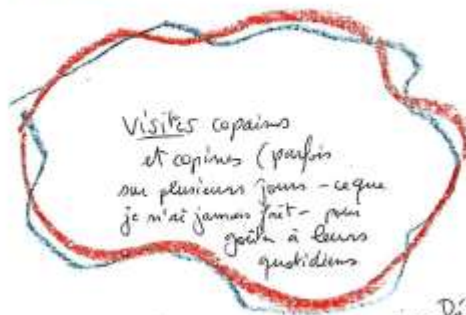 Visites copains
et copines (parfois
sur plusieurs jours - ce que
je n'ai jamais fait - pour
goûter à leurs
quotidiens